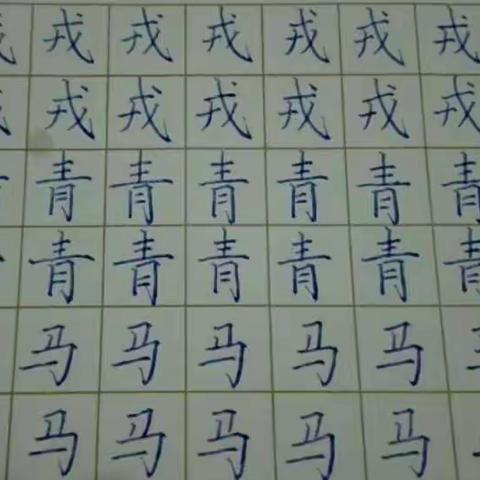 戎戎戎戎戎戎
戎戎戎戎戎戎
青青青青青青
青青青青青青
马马马马马
马马马马马